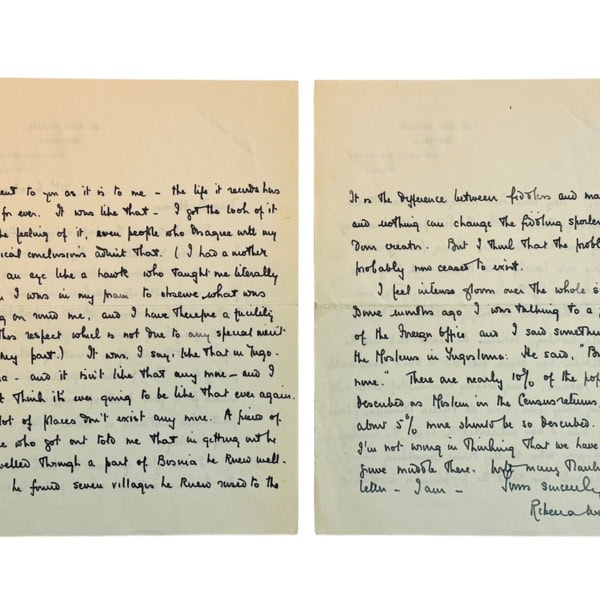 ent to you as it is to me - the life it records has
for ever. It was like that - I got the look of it
he feeling of it, even people who disagree with my
ical conclusions admit that. (I had a mother
an eye like a hawk who taught me literally
I was in my pram to observe what was
g on round me, and I have therefore a facility
this respect which is not due to any special merit
my part.) It was, I say, like that in Jugo-
a - and it isn't like that any more - and I
t think it's ever going to be like that ever again.
lot of places don't exist any more. A friend of
e who got out told me that in getting out he
velled through a part of Bosnia he knew well -
he found seven villages he knew rased to the
It is the difference between fiddlers and ma
and nothing can change the fiddling spoiler
into creator. But I think that the probl
probably now ceased to exist.
I feel intense gloom over the whole s
Some months ago I was talking to a
of the Foreign Office and I said something
the Moslems in Jugoslavia. He said, "B
none." There are nearly 10% of the pop
described as Moslem in the Census returns,
about 5% more should be so described.
I'm not wrong in thinking that we have
muddle there. With many thanks
letter - I am - Yours sincerely
Rebecca We